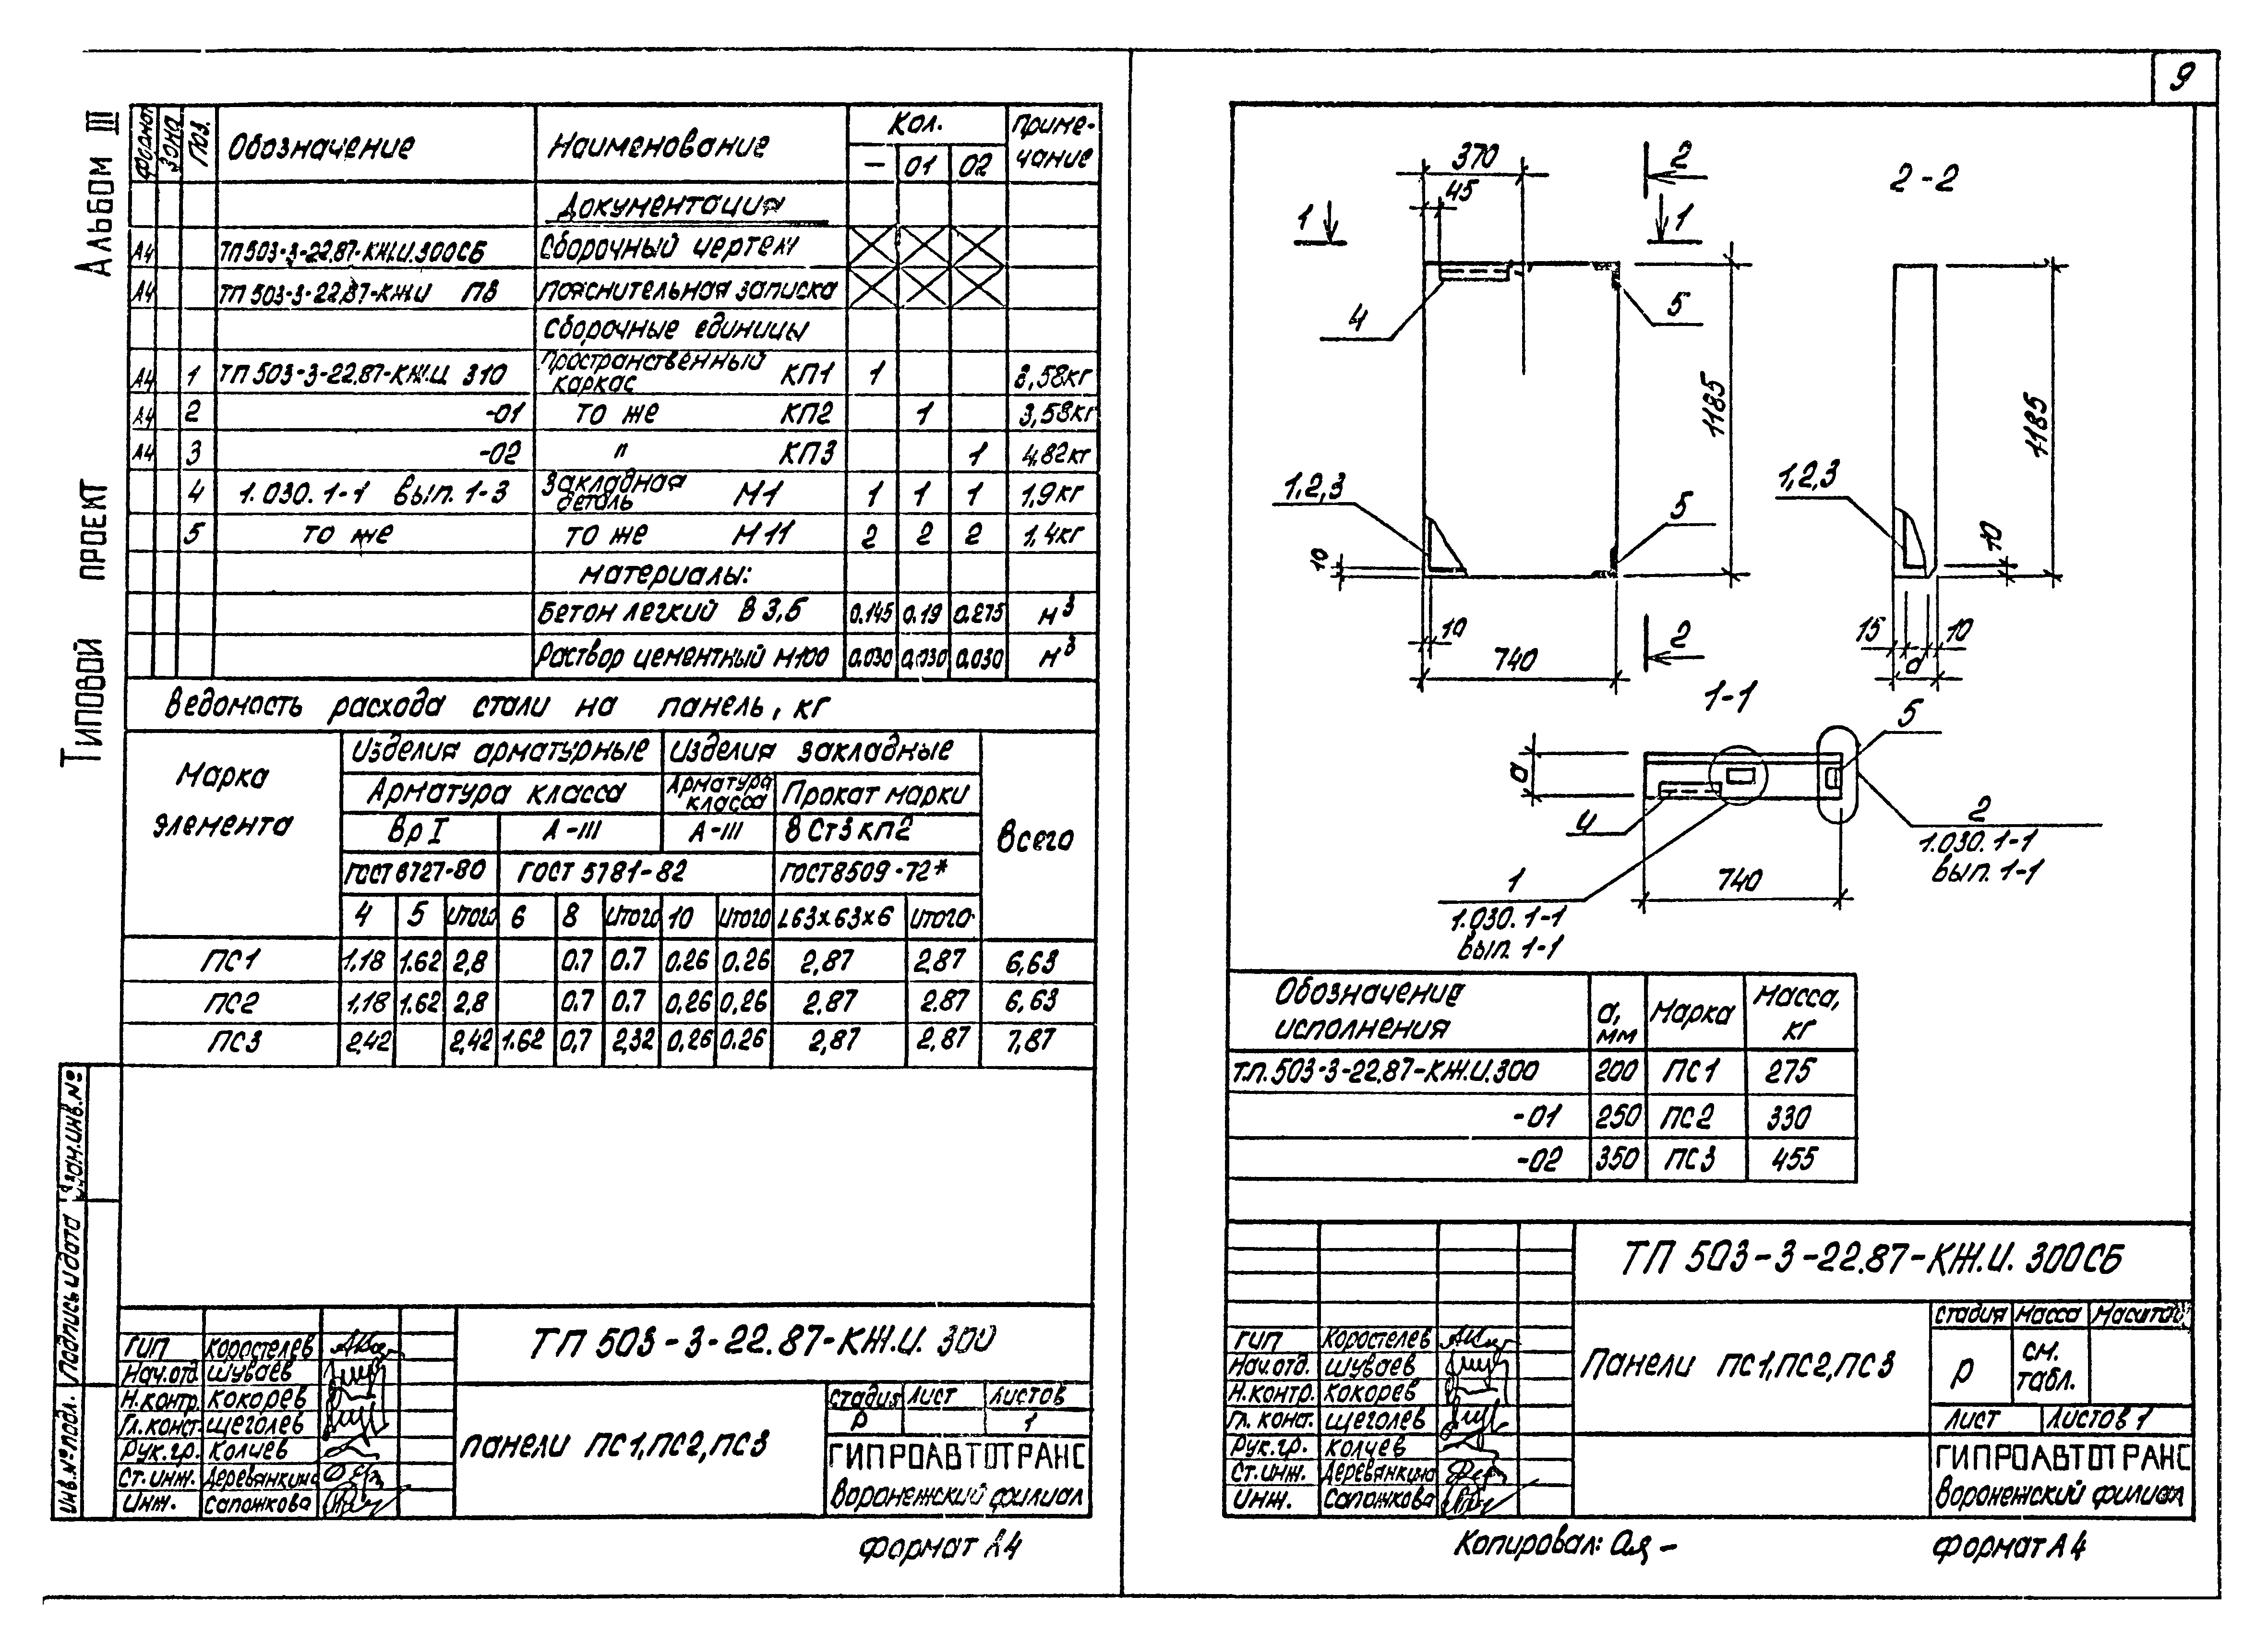 9
Альбом III
Типовой проект
Формат Зона Поз. Обозначение Наименование Кол. Приме-
чание
— 01 02
Документация
А4 ТП503-3-22.87-КЖ.И.300СБ Сборочный чертеж
А4 ТП 503-3-22.87-КЖИ ПЗ Пояснительная записка
Сборочные единицы
А4 1 ТП 503-3-22.87-КЖ.И 310 Пространственный
каркас КП1 1 3,58кг
А4 2 -01 То же КП2 1 3,58кг
А4 3 -02 " КП3 1 4,82кг
4 1.030.1-1 вып. 1-3 Закладная
деталь М1 1 1 1 1,9кг
5 то же то же М11 2 2 2 1,4кг
Материалы:
Бетон легкий В 3,5 0.145 0.19 0.275 м³
Раствор цементный М100 0.030 0.030 0.030 м³
Ведомость расхода стали на панель, кг
Марка
элемента
Изделия арматурные Изделия закладные
Всего
Арматура класса Арматура
класса Прокат марки
Вр I А-III А-III ВСт3кп2
ГОСТ 6727-80 ГОСТ 5781-82 ГОСТ8509-72*
4 5 Итого 6 8 Итого 10 Итого L63х63х6 Итого
ПС1 1,18 1.62 2,8 0.7 0.7 0.26 0.26 2,87 2,87 6,63
ПС2 1,18 1.62 2,8 0.7 0.7 0,26 0,26 2.87 2.87 6,63
ПС3 2,42 2,42 1.62 0,7 2,32 0,26 0.26 2,87 2,87 7,87
Взам.инв.№
Подпись и дата
Инв.№ подл.
ГИП Коростелев
Нач.отд. Шуваев
Н.контр. Кокорев
Гл.конст. Щеголев
Рук.гр. Колчев
Ст.инж. Деревянкина
Инж. Сапожкова
ТП 503-3-22.87-КЖ.И. 300
Панели ПС1,ПС2,ПС3
Стадия Лист Листов
Р 1
ГИПРОАВТОТРАНС
Воронежский филиал
Формат А4
370
45
2
1 1
2-2
4
5
1185
1185
1,2,3
5
1,2,3
10
10
10
740
2
15 10
а
1-1
5
а
4
2
1.030.1-1
вып. 1-1
1
1.030.1-1
вып. 1-1
740
Обозначение
исполнения а,
мм Марка Масса,
кг
Т.п.503-3-22.87-КЖ.И.300 200 ПС1 275
-01 250 ПС2 330
-02 350 ПС3 455
ГИП Коростелев
Нач.отд. Шуваев
Н.контр. Кокорев
Гл. конст. Щеголев
Рук.гр. Колчев
Ст.инж. Деревянкина
Инж. Сапожкова
ТП 503-3-22.87-КЖ.И. 300СБ
Панели ПС1,ПС2,ПС3
Стадия Масса Масштаб
Р см.
табл.
Лист Листов 1
ГИПРОАВТОТРАНС
Воронежский филиал
Копировал:
Формат А4